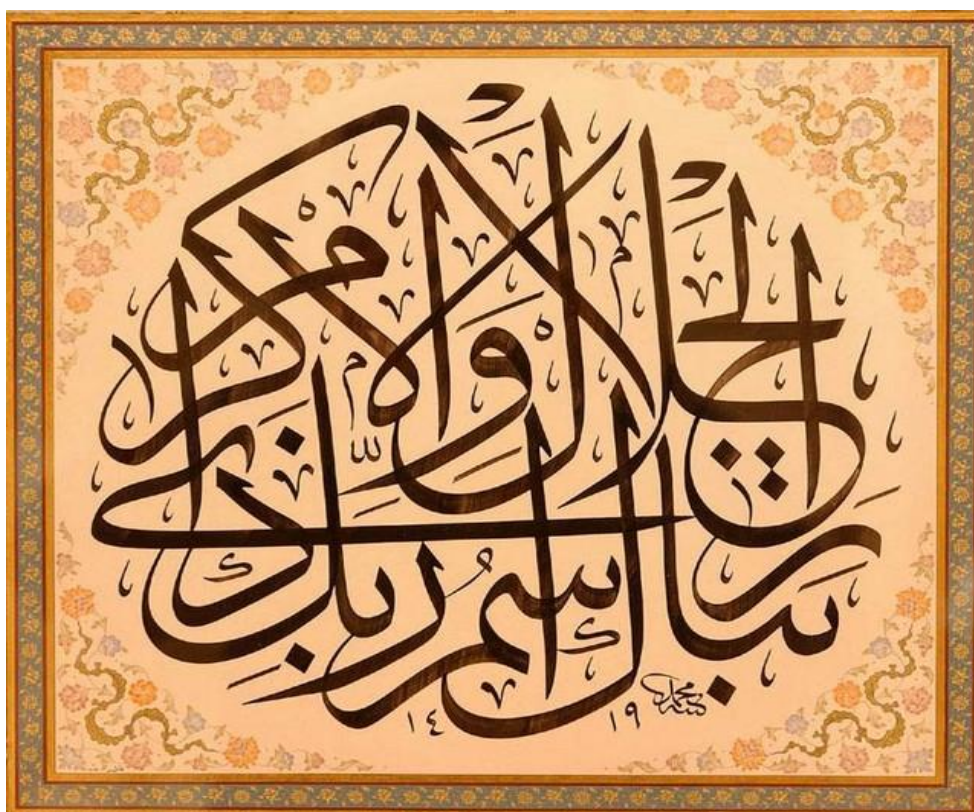 تبارك اسم ربك ذي الجلال والاكرام
محمد
١٤١٩